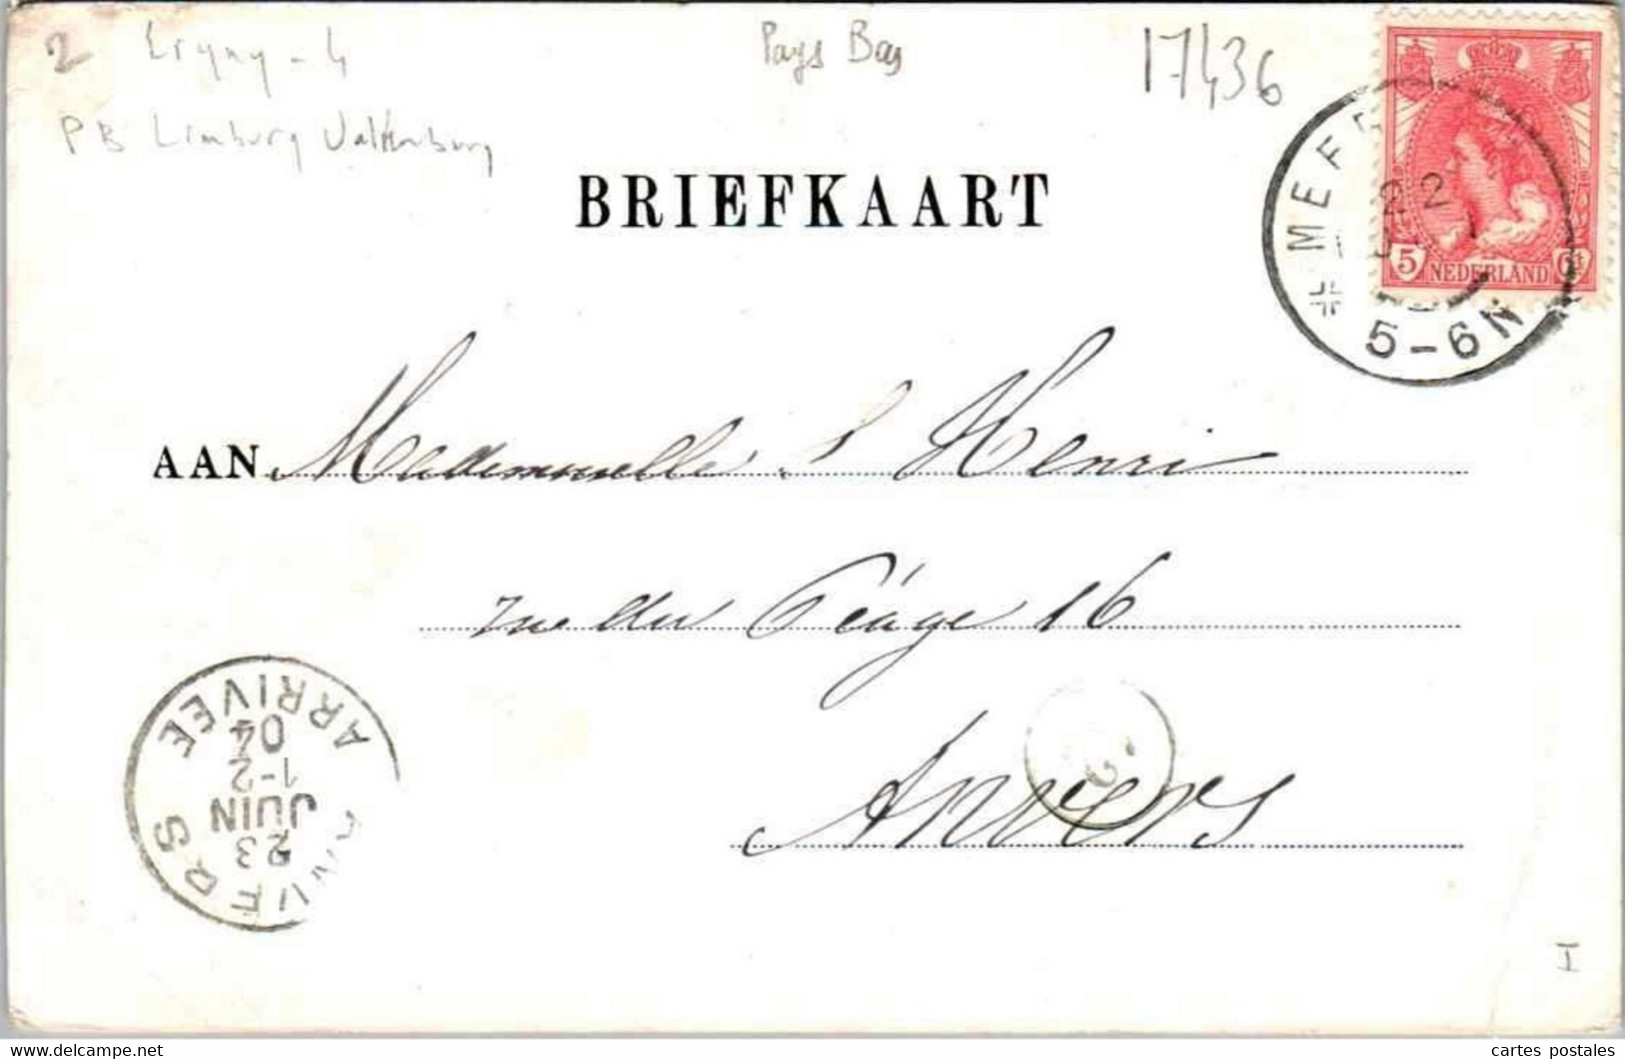 2
Pays Bas
17436
PB Limburg Valkenburg
BRIEFKAART
5 NEDERLAND
22
5-6N
AAN Mademoiselle S Henri
rue du Péage 16
Anvers
ANVERS
23
JUIN
1-2
04
ARRIVEE
I
delcampe.net
cartes postales